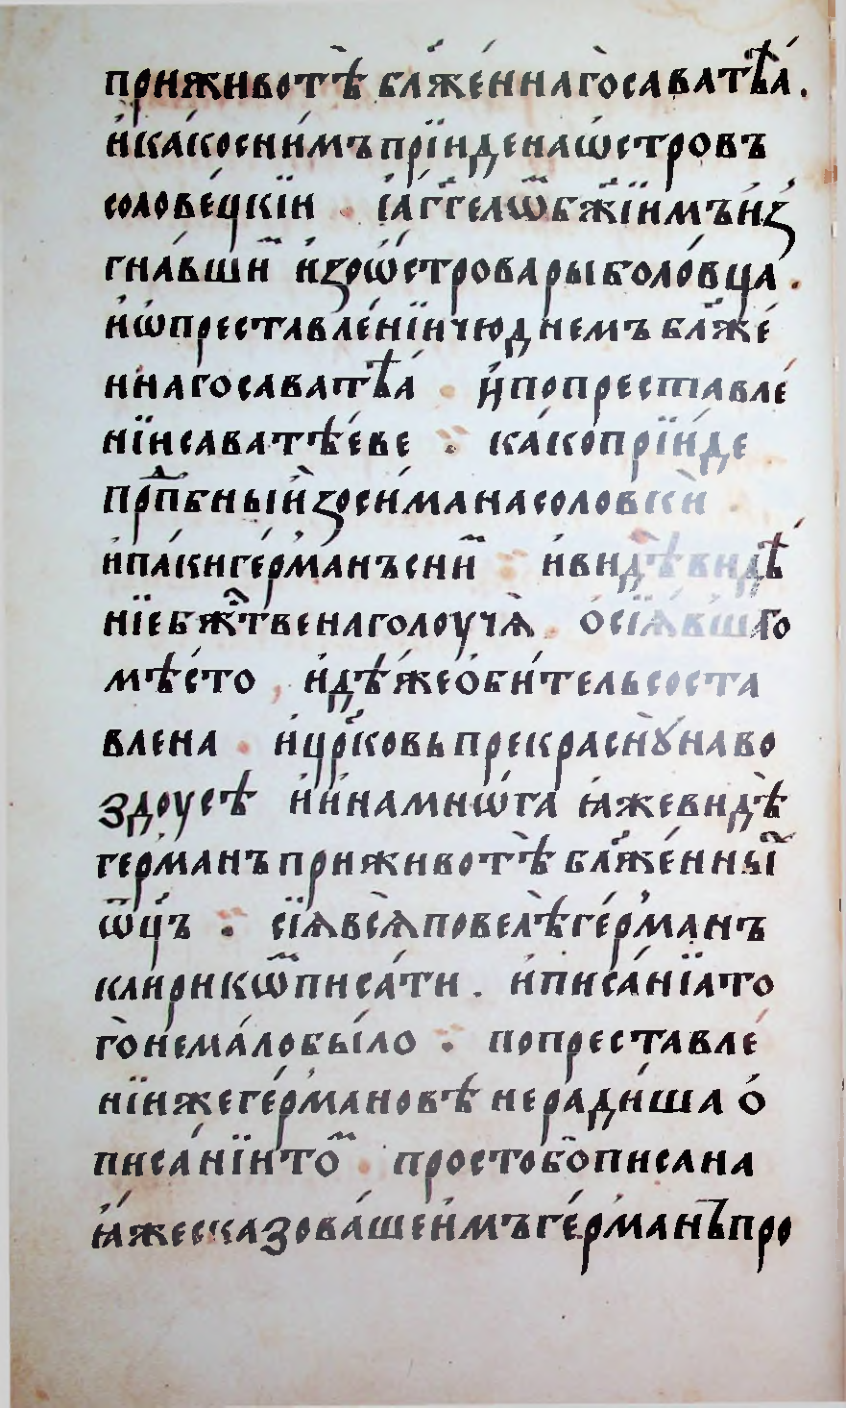 приживотѣ бл҃же́ннагѡ̀саватїа́ .
и҆ка́косни́мъ прїи́де наѡ҆́стровъ
солове́цкїи . і҆а҆́гг҃елѡⷨ бж҃їимъ и҆з̾
гна́вшиⷨ и҆зоѡ҆́строва рыболо́вца .
и҆ѡ҆преставле́нїи чю́днемъ бл҃же́
ннагосаватїа́ . и҆попреставле́
нїи саватѣ́еве . ка́ко прїи́де
прпⷣбныи҆ зоси́ма насоловки̏
и҆па́ки ге́рманъ сниⷨ . и҆видѣ̀ видѣ́
нїе бж҃твенаго лоучѧ̀ . о҆сїѧ́вшаго
мѣ́сто , и҆дѣ́же о҆би́тель соста
влена . и҆ цр҃ковь прекраснꙋ̀ наво
здоусѣ и҆и҆́на мнѡ́га ꙗ҆же видѣ̀
ге́рманъ приживотѣ̀ бл҃же́нныⷯ
ѿц҃ъ . сїѧ̑ всѧ̀ повелѣ̀ ге́рманъ
клирикѡⷨ писа́ти . и҆писа́нїа то
го̀ нема́ло бы́ло . попреставле́
нїи же ге́рмановѣ неради́ша ѻ҆
писа́нїи тоⷨ . простобо̀ писана
ꙗ҆́же сказова́ше и҆́мъ ге́рманъ про